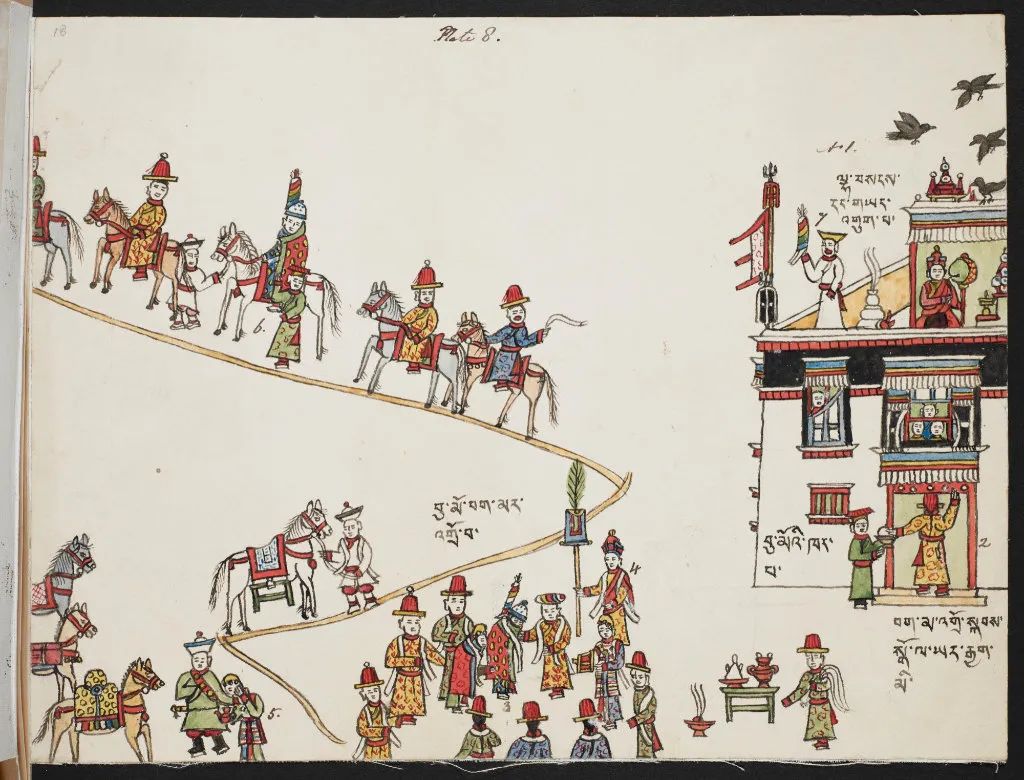 18
Plate 8.
ལྷ་བསངས་
དང་གཡང་
འགུག་པ་
7
6.
བུ་མོ་བག་མར་
འགྲོ་བ་
4
བུ་མོའི་ཁང་
པ་
2
བག་མ་འགྲོ་སྐབས་
སྒོ་ལ་ཡར་རྒྱག་
མི་
3
5.